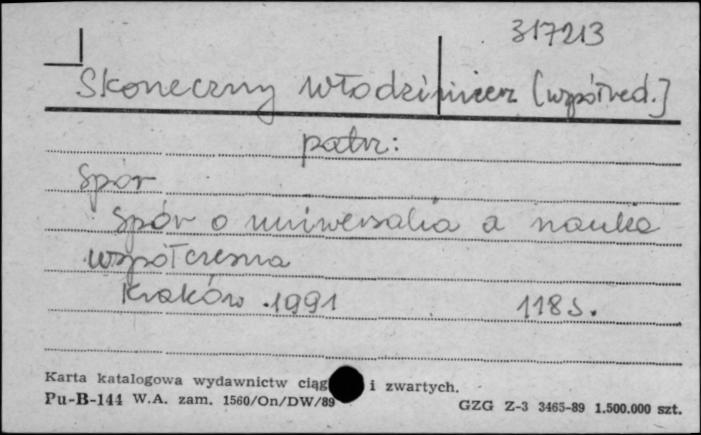 317213
Skoneczny Włodzimierz [współred.]
patrz:
Spór
Spór o uniwersalia a nauka
współczesna
Kraków 1991 118 s.
Karta katalogowa wydawnictw ciąg i zwartych.
Pu-B-144 W.A. zam. 1560/On/DW/89
GZG Z-3 3465-89 1.500.000 szt.